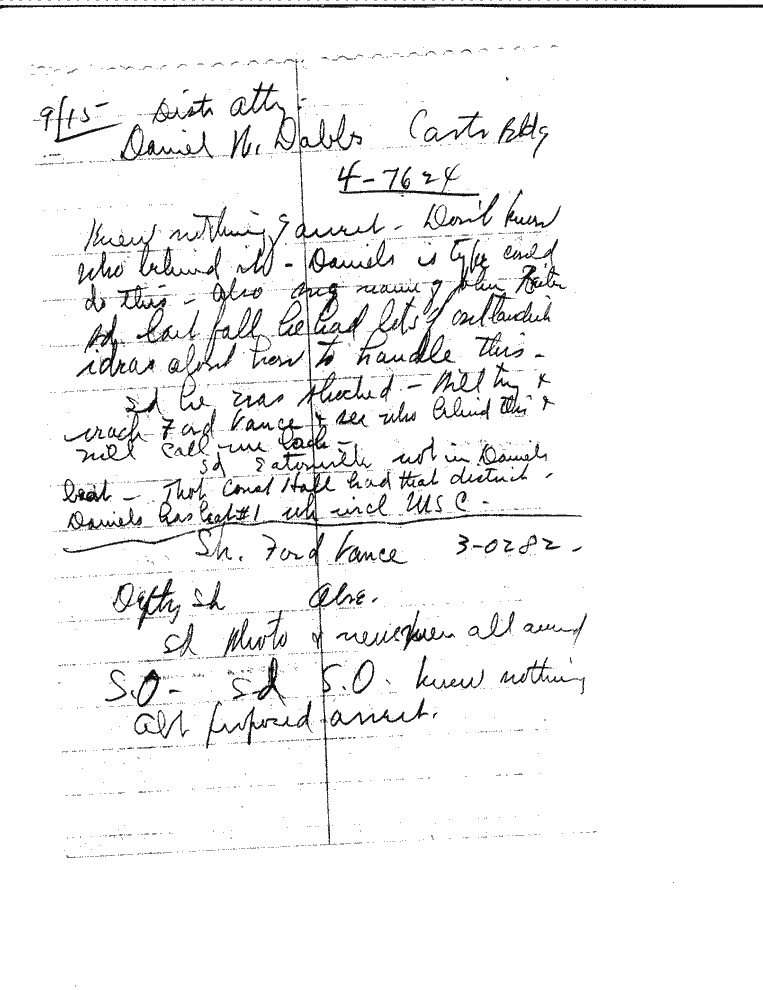 9/15 Distr Atty:
Daniel N. Dabbs Carts Bldg
4-7624
Knew nothing of arrest - Don't know
who behind it - Daniels is type could
do this - Also ment name of John
sd last fall he had lots of outlandish
ideas about how to handle this -
sd he was shocked - Will try &
reach Ford Vance & see who behind this &
will call me back -
sd Eatonville not in Daniels
beat - That Const Hall had that district.
Daniels has beat #1 wh incl MSC -
Sh. Ford Vance 3-0282 -
Depty Sh Abse.
sd photo & newsmen all around
S.O - sd S.O. knew nothing
abt proposed arrest.